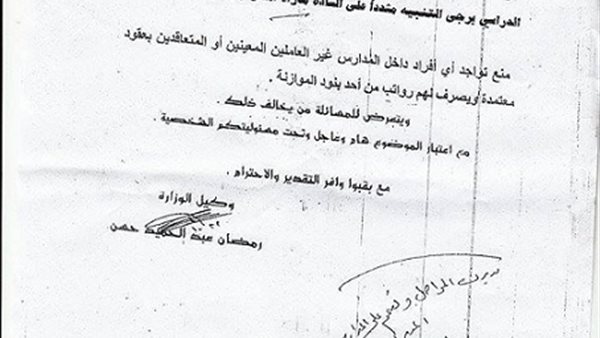 الدراسي يرجى التنبيه مشدداً على السادة
منع تواجد أي أفراد داخل المدارس غير العاملين المعينين أو المتعاقدين بعقود
معتمدة ويصرف لهم رواتب من أحد بنود الموازنة .
ويتعرض للمسائلة من يخالف ذلك .
مع اعتبار الموضوع هام وعاجل وتحت مسئوليتكم الشخصية .
مع بقبوا وافر التقدير والاحترام .
وكيل الوزارة
رمضان عبد الحميد حسن